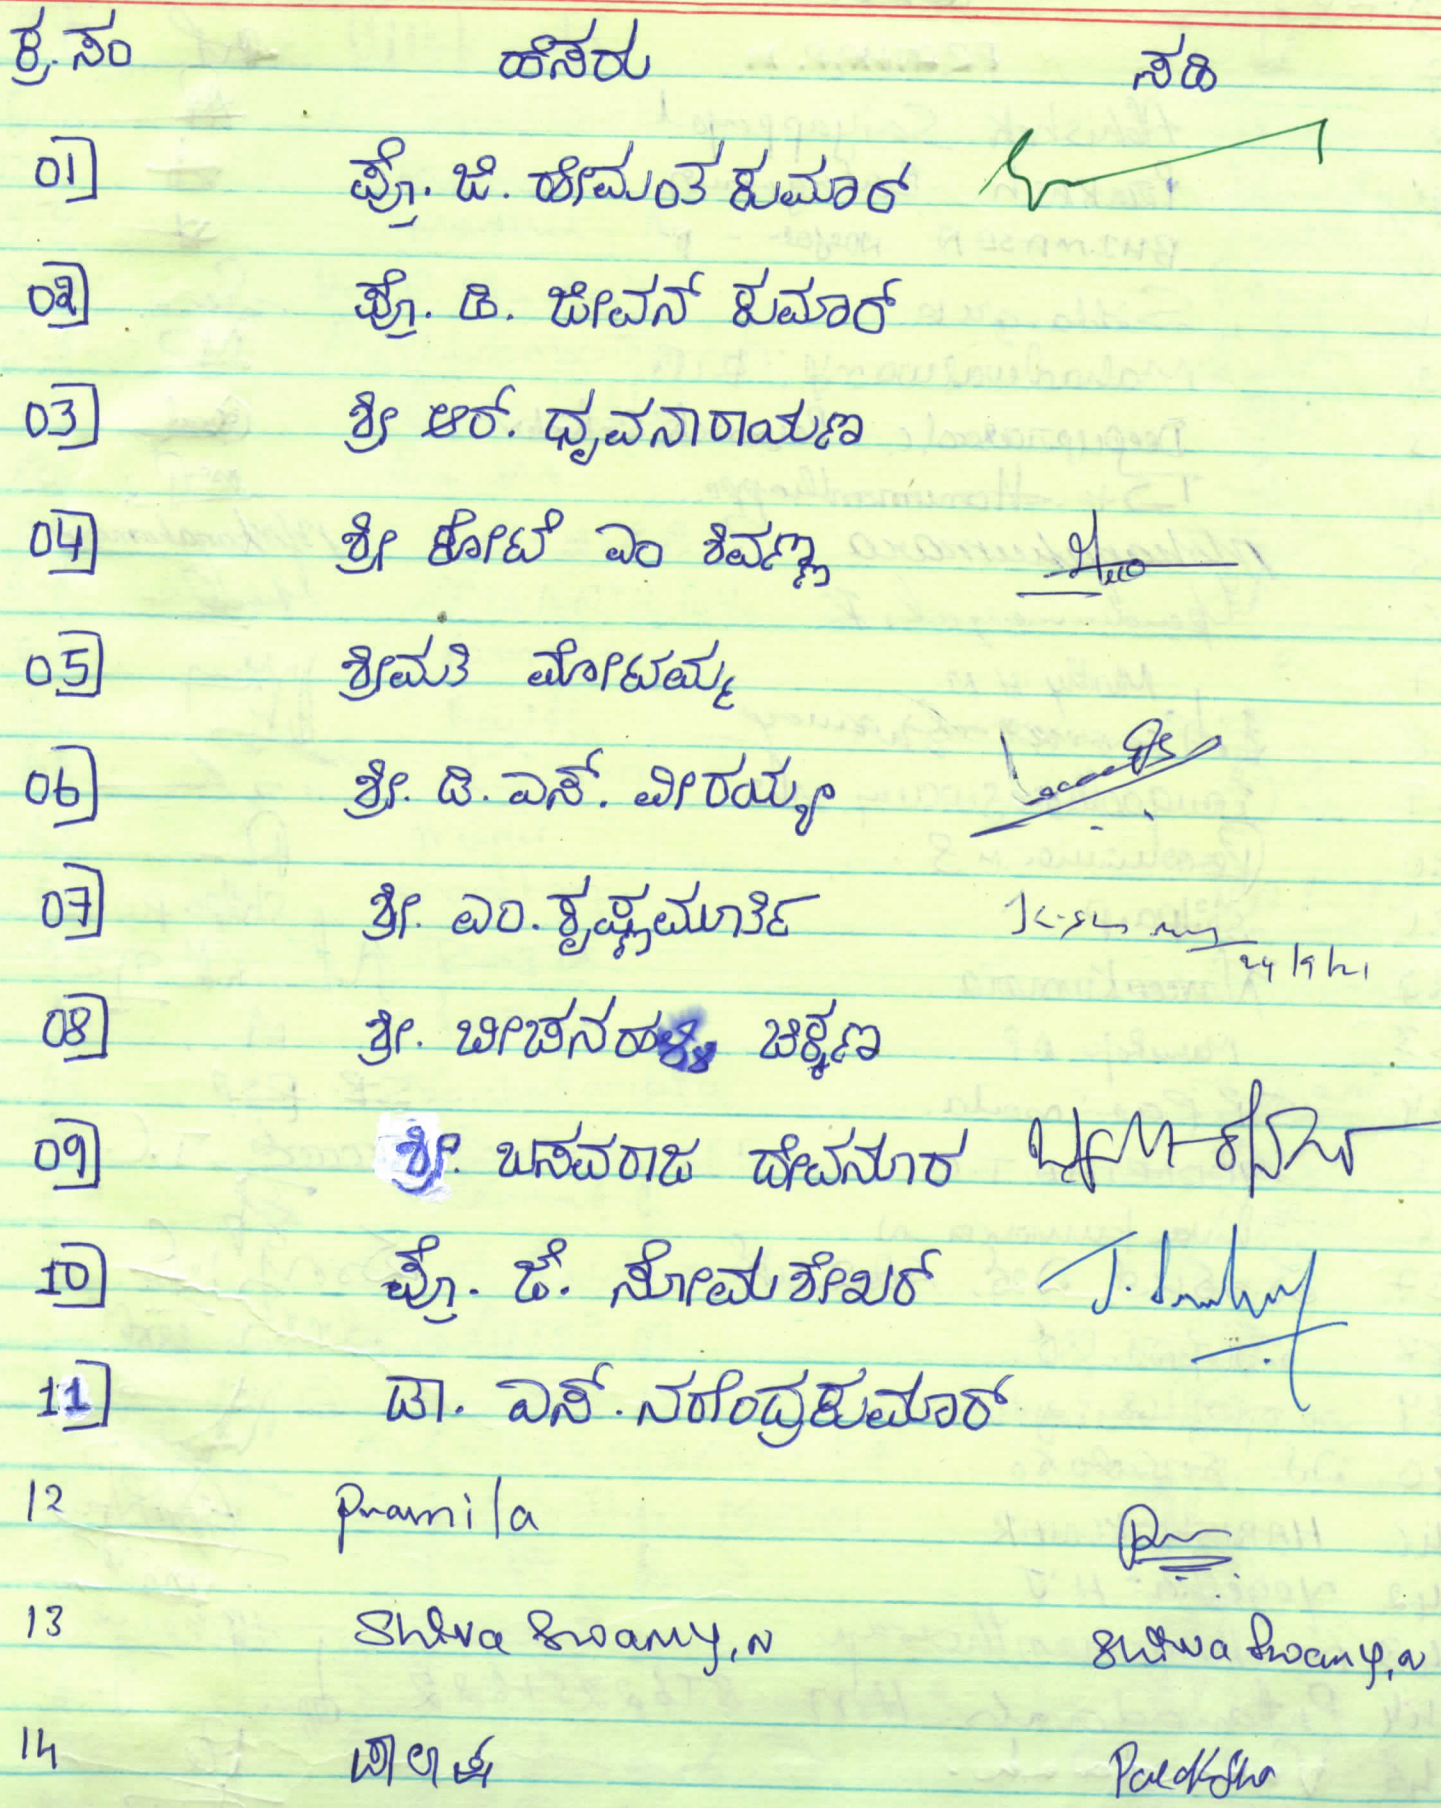 ಕ್ರ.ಸಂ ಹೆಸರು ಸಹಿ
01] ಪ್ರೊ. ಜಿ. ಹೇಮಂತ ಕುಮಾರ್
02] ಪ್ರೊ. ಡಿ. ಜೀವನ್ ಕುಮಾರ್
03] ಶ್ರೀ ಆರ್. ಧೃವನಾರಾಯಣ
04] ಶ್ರೀ ಕೋಟೆ ಎಂ ಶಿವಣ್ಣ
05] ಶ್ರೀಮತಿ ಮೋಟಮ್ಮ
06] ಶ್ರೀ. ಡಿ. ಎಸ್. ವೀರಯ್ಯ
07] ಶ್ರೀ. ಎಂ. ಕೃಷ್ಣಮೂರ್ತಿ 24/9/21
08] ಶ್ರೀ. ಬೀಚನಹಳ್ಳಿ ಚಿಕ್ಕಣ
09] ಶ್ರೀ. ಬಸವರಾಜ ದೇವನೂರ
10] ಪ್ರೊ. ಜೆ. ಸೋಮಶೇಖರ್
11] ಡಾ. ಎಸ್. ನರೇಂದ್ರಕುಮಾರ್
12 Pramila
13 Shiva Swamy.N Shiva Swamy.N
14